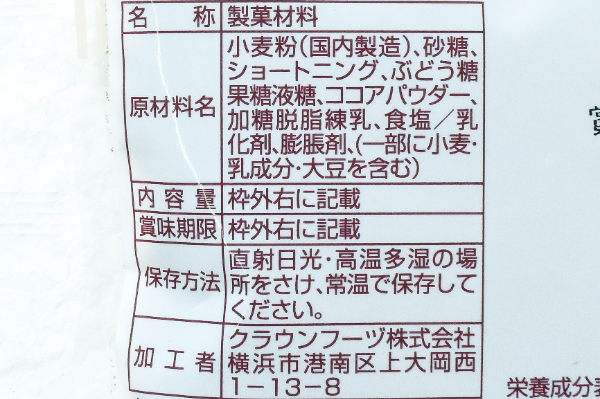 名称 製菓材料
原材料名 小麦粉(国内製造)、砂糖、
ショートニング、ぶどう糖
果糖液糖、ココアパウダー、
加糖脱脂練乳、食塩／乳
化剤、膨脹剤、(一部に小麦・
乳成分・大豆を含む)
内容量 枠外右に記載
賞味期限 枠外右に記載
保存方法 直射日光・高温多湿の場
所をさけ、常温で保存して
ください。
加工者 クラウンフーヅ株式会社
横浜市港南区上大岡西
1-13-8
栄養成分